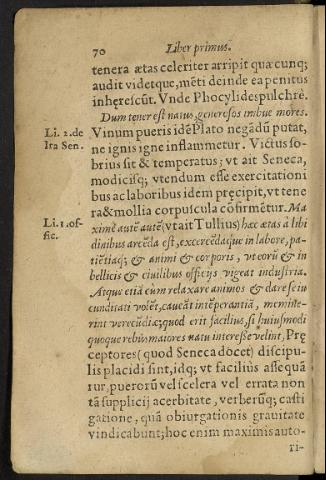 70 Liber primus.
tenera ætas celeriter arripit quæcunq;
audit videtque, mẽti deinde ea penitus
inhęrescũt. Vnde Phocylides pulchrè.
Dum tener est natus, generosos imbue mores.
Li. 2. de Vinum pueris idẽ Plato negãdũ putat,
Ira Sen. ne ignis igne inflammetur. Victus so-
brius sit & temperatus; vt ait Seneca,
modicisq; vtendum esse exercitationi
bus ac laboribus idem pręcipit, vt tene
ra & mollia corpuscula cõfirmẽtur. Ma
Li. 1. of- ximè autẽ autẽ (vt ait Tullius) hæc ætas à libi
fic. dinibus arcẽda est, exercẽdaque in labore, pa-
tiẽtiaq; & animi & corporis, vt eorũ & in
bellicis & ciuilibus officijs vigeat industria.
Atque etiã cùm relaxare animos & dare se iu
cunditati volẽt, caueãt intẽperantiã, meminte-
rint verecũdiæ; quod erit facilius, si huiusmodi
quoque rebus maiores natu interesse velint, Prę
ceptores (quod Seneca docet) discipu-
lis placidi sint, idq; vt faciliùs assequã
tur, puerorũ vel scelera vel errata non
tã supplicij acerbitate, verberũq; casti
gatione, quã obiurgationis grauitate
vindicabunt; hoc enim maximis auto-
ri-